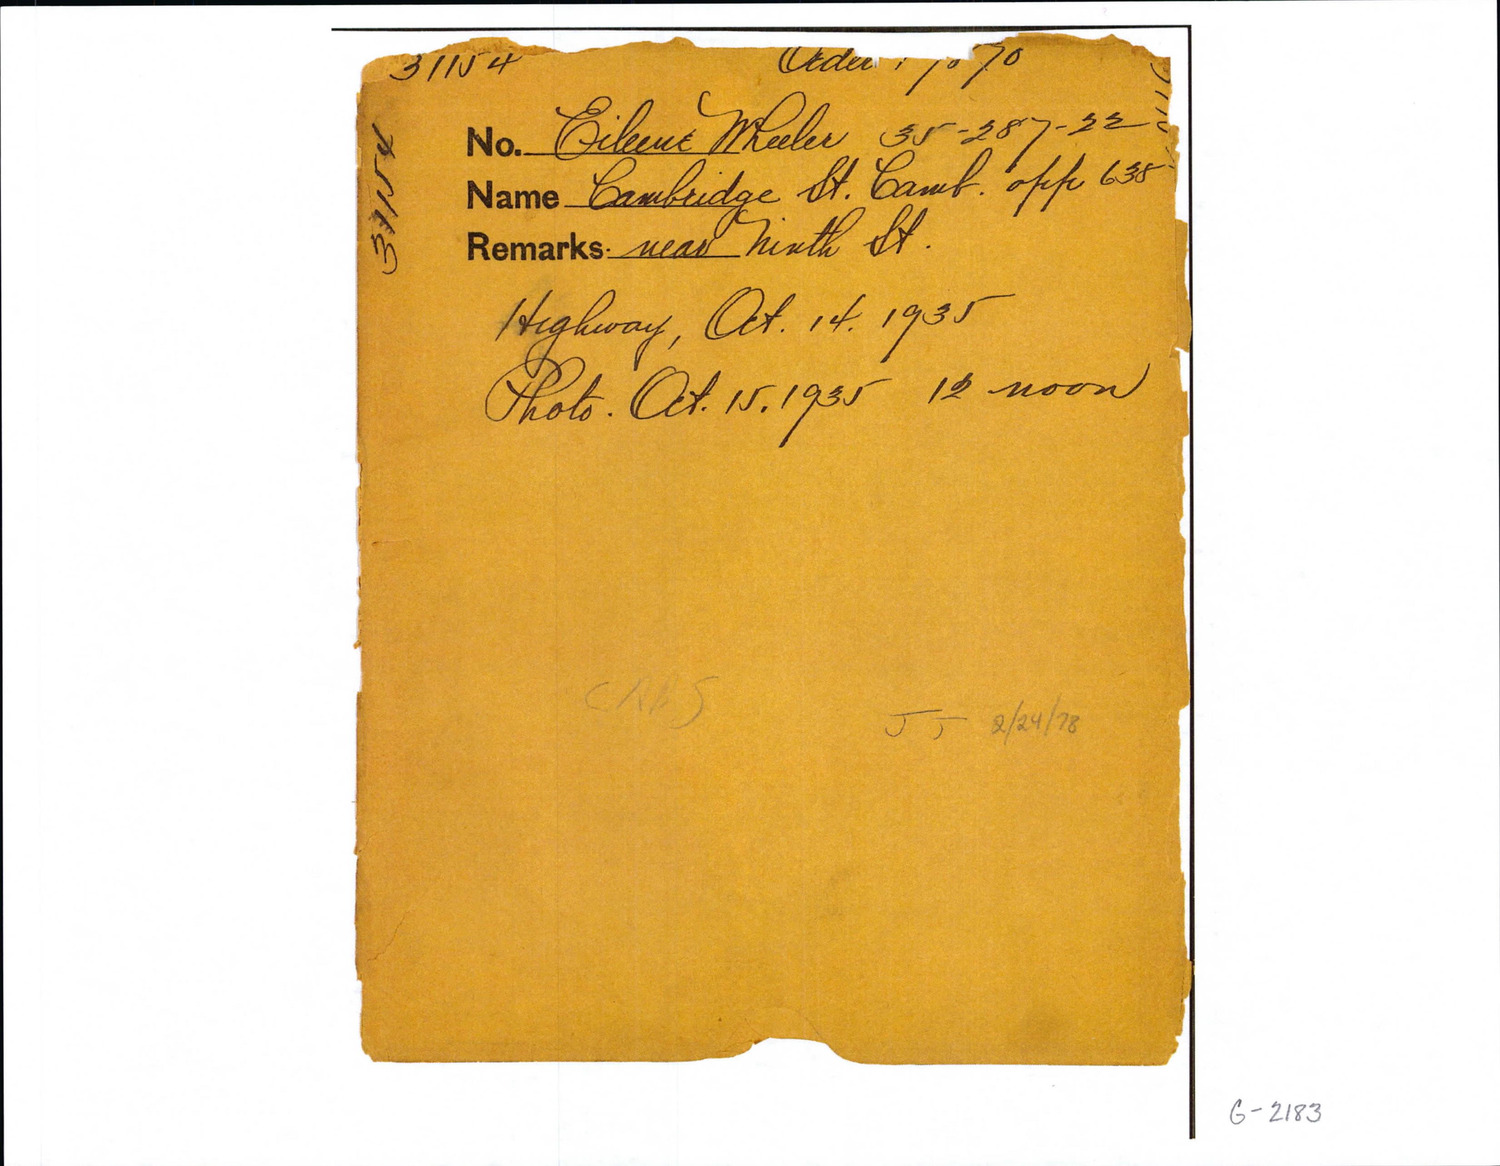 31154 Order
31154
No. Eileene Wheeler 35-287-22
Name Cambridge St. Camb. opp 638
Remarks near Ninth St.
Highway, Oct. 14. 1935
Photo. Oct. 15. 1935 12 noon
CABS
JJ 2/24/78
G-2183